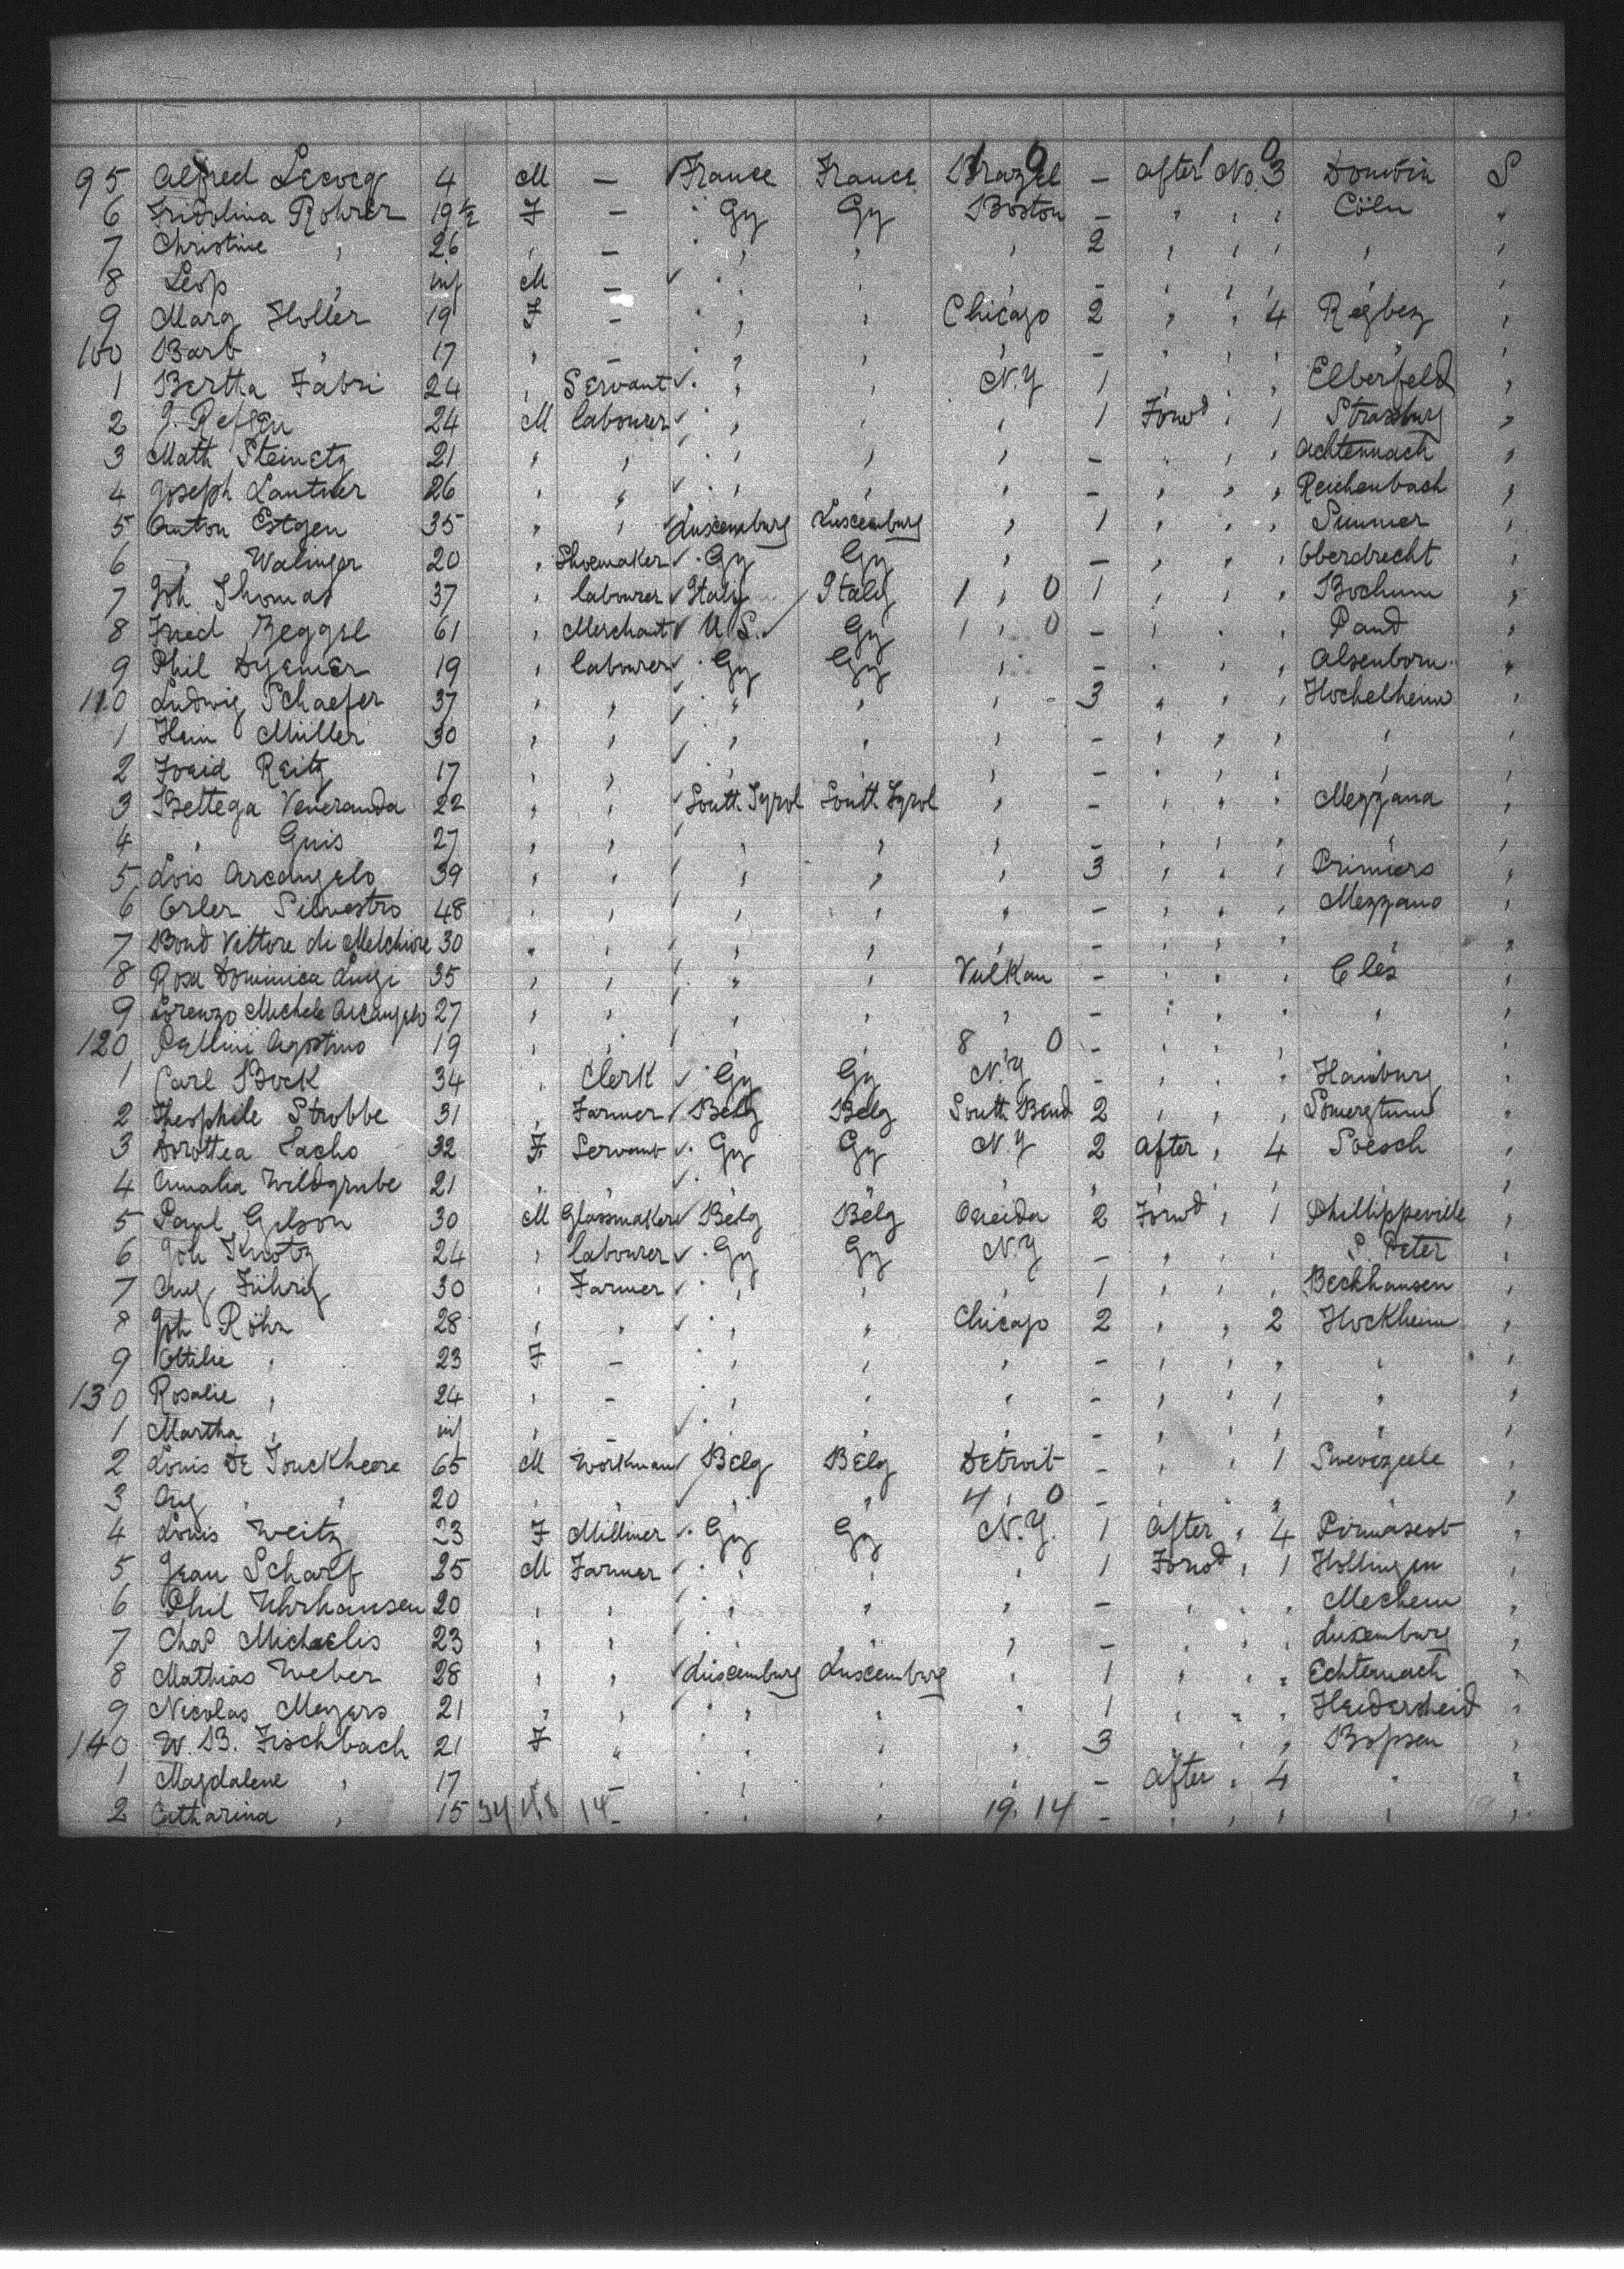 95 Alfred Lecocq 4 M — France France Brazil — after No. 3 Douvrin S
6 Fridolina Rohrer 19½ F — Gy Gy Boston — , , , Cöln "
7 Christine , 26 , — , , , 2 , , , , ,
8 Leop , inf M — , , , — , , , , ,
9 Marg Holler 19 F — , , Chicago 2 , , 4 Regbez ,
100 Barb , 17 , — , , , — , , , , ,
1 Bertha Fabri 24 , Servant , , N.Y 1 , , , Elberfeld ,
2 J. Reffeu 24 M labourer , , , 1 Forwd , 1 Strassburg ,
3 Math Steinetz 21 , , , , , — , , , Achternach ,
4 Joseph Lantner 26 , , , , , — , , , Reichenbach ,
5 Anton Estgen 35 , , Luxemburg Luxemburg , 1 , , , Summer ,
6 , Walinger 20 , Shoemaker Gy Gy , — , , , Oberdrecht ,
7 Joh. Thomas 37 , labourer Italy Italy 1 , 0 1 , , , Bochum ,
8 Fred Beggel 61 , Merchant U.S. Gy 1 , 0 — , , , Pand ,
9 Phil Dyemer 19 , labourer Gy Gy , — , , , Alsenborn "
110 Ludwig Schaefer 37 , , , , , 3 , , , Hochelheim ,
1 Hein Müller 30 , , , , , — , , , , ,
2 Freid Reitz 17 , , , , , — , , , , ,
3 Bettega Veneranda 22 , , South Tyrol South Tyrol , — , , , Mezzana ,
4 , Guis 27 , , , , , — , , , , ,
5 Lois Arcangelo 39 , , , , , 3 , , , Primiero ,
6 Orler Silvestro 48 , , , , , — , , , Mezzano ,
7 Bond Vittore di Melchiore 30 , , , , , — , , , , ,
8 Rosa Dominica Luigi 35 , , , , Vulkan — , , , Cles ,
9 Lorenzo Michele Arcangelo 27 , , , , , — , , , , ,
120 Pellini Agostino 19 , , , , 8 0 — , , , , ,
1 Carl Bock 34 , Clerk Gy Gy N.Y — , , , Hamburg ,
2 Theophile Strobbe 31 , Farmer Belg Belg South Bend 2 , , , ,
3 Dorottea Sacho 32 F Servant Gy Gy N.Y 2 After , 4 Soesch ,
4 Amalia Wildgrube 21 , , , , , , , , , , ,
5 Paul Gilson 30 M Glassmaker Belg Belg Oneida 2 Forwd , 1 Phillippeville ,
6 Joh Knotz 24 , labourer Gy Gy N.Y — , , , P. Peter ,
7 Aug Führig 30 , Farmer , , , 1 , , , Beckhausen ,
8 Joh Röhr 28 , , , , Chicago 2 , , 2 Hockheim ,
9 Ottilie , 23 F — , , , — , , , , ,
130 Rosalie , 24 , — , , , — , , , , ,
1 Martha , inf , — , , , — , , , , ,
2 Louis De Jonckheere 65 M Workman Belg Belg Detroit — , , 1 Swevezeele ,
3 Aug , , 20 , , , , 4 , 0 — , , , , ,
4 Louis Weitz 23 F Milliner Gy Gy N.Y. 1 After , 4 Pirmasent ,
5 Jean Scharf 25 M Farmer , , , 1 Forwd , 1 Hollingen ,
6 Phil Uhrhausen 20 , , , , , — , , , Mechern ,
7 Chas Michaelis 23 , , , , , — , , , Luxemburg ,
8 Mathias Weber 28 , , Luxemburg Luxemburg , 1 , , , Echternach ,
9 Nicolas Meyers 21 , , , , , 1 , , , Heiderscheid ,
140 W. B. Fischbach 21 F , , , , 3 , , , Bopsen ,
1 Magdalene , 17 , — , , , — after , 4 , ,
2 Catharina , 15 34 14 — , , 19. 14 — , , , , ,